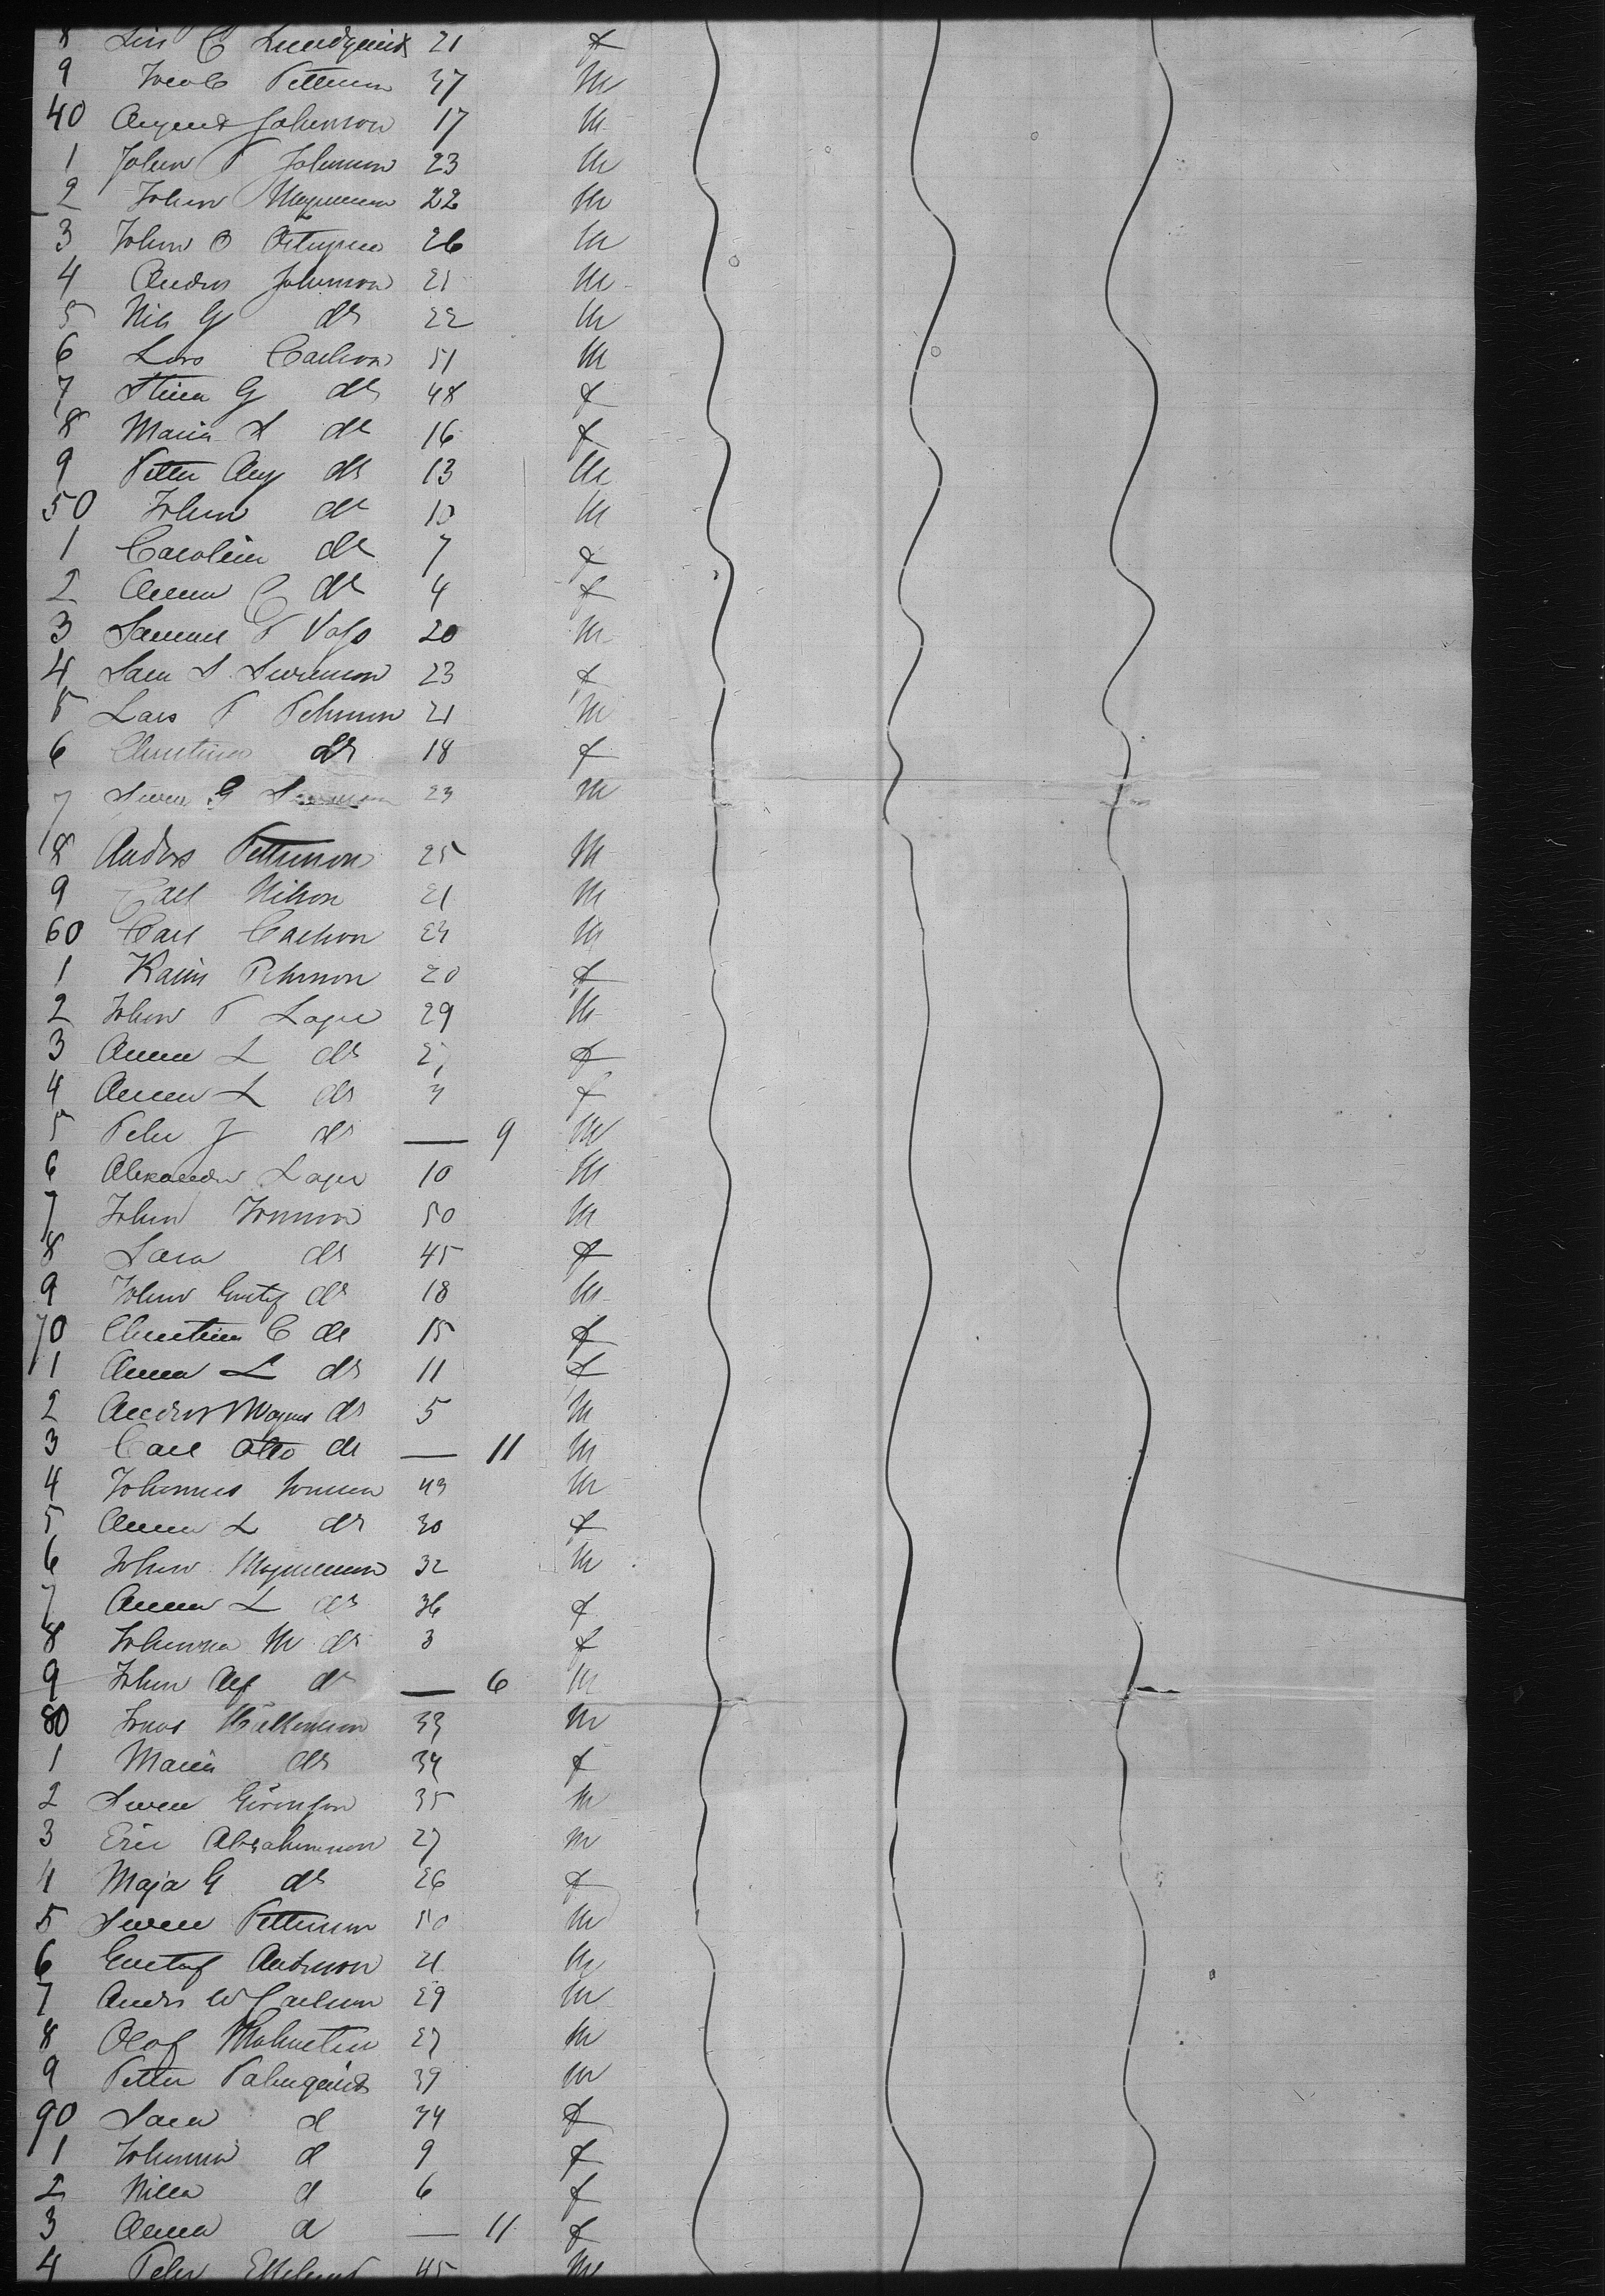 8 Lisa C Lundquist 21 f
9 Jacob Petterson 37 m
40 August Johnson 17 m
1 John P Johnson 23 m
2 John Magnuson 22 m
3 John O 26 m
4 Anders Johnson 21 m
5 Nils G do 22 m
6 Lars Carlson 51 m
7 Stina G do 48 f
8 Maria S do 16 f
9 Petter Aug do 13 m
50 John do 10 m
1 Carolina do 7 f
2 Anna C do 4 f
3 Samuel P Vass 20 m
4 Sara S Swenson 23 f
5 Lars P Pehrson 21 m
6 Christina do 18 f
7 Swen G 23 m
8 Anders Petterson 25 m
9 Carl Nilson 21 m
60 Carl Carlson 23 m
1 Karin Pehrson 20 f
2 John P Lager 29 m
3 Anna L do 27 f
4 Anna L do 3 f
5 Pehr J do — 9 m
6 Alexander Lager 10 m
7 John Jonson 50 m
8 Sara do 45 f
9 John Gustaf do 18 m
70 Christina C do 15 f
1 Anna L do 11 f
2 Anders Magnus do 5 m
3 Carl Otto do — 11 m
4 Johannes Jonson 43 m
5 Anna L do 30 f
6 John Magnuson 32 m
7 Anna L do 36 f
8 Johanna M do 3 f
9 John Alf do — 6 m
80 Jonas 33 m
1 Maria do 34 f
2 Swen Göranson 35 m
3 Eric Abrahamson 27 m
4 Maja G do 26 f
5 Swen Petterson 50 m
6 Gustaf Anderson 21 m
7 Anders W Carlson 29 m
8 Olof 27 m
9 Petter Palmquist 39 m
90 Sara d 34 f
1 Johanna d 9 f
2 Nilla d 6 f
3 Anna d — 11 f
4 Pehr 45 m